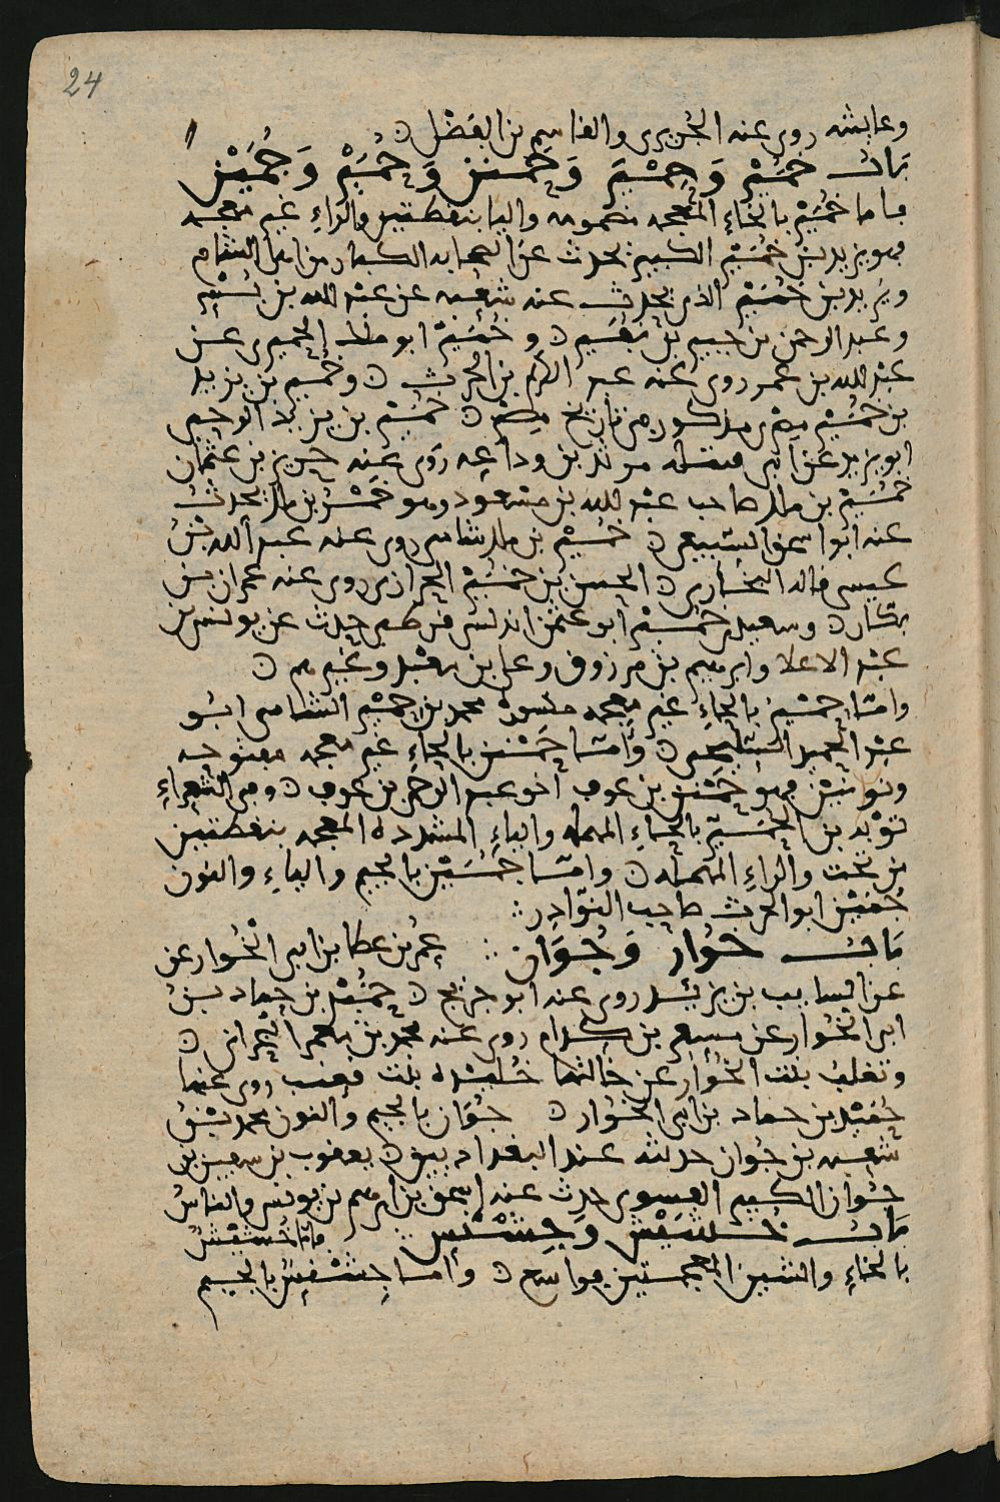 24
وعايشه روى عنه الجريرى والقاسم بن الفضل
باب خمير وحمير وحمنن وحمير وجمين
فاما خمير بالخاء المعجمه مضمومه واليا بنقطتين والراء غير معجمه
فهو يزيد بن خمير الكبير يحدث عن الصحابه الكبار من اهل الشام
ويزيد بن خمير الذى يحدث عنه شعبه عن عبد الله بن بسر
وعبد الرحمن بن جبير بن نفير وخمير ابو مالك الحميرى عن
عبد الله بن عمرو روى عنه عبد الكريم بن الحرث وخمير بن يزيد
بن خمير مصرى مذكور فى تاريخ مصر خمير بن يزيد الرحبى
ابو يزيد عن ابى مرثد بن وداعه روى عنه حريز بن عثمان
خمير بن ملك صاحب عبد الله بن مسعود وهو خمر بن ملك يحدث
عنه ابو اسحق السبيعى خمير بن ملك شامى روى عنه عبد الله بن
عيسى قاله البخارى الحسن بن خمير الحرازى روى عنه عمران بن
بكار وسعيد بن خمير ابو عثمن اندلسى قرطبى حدث عن يونس بن
عبد الاعلا وابرهيم بن مرزوق وعلى بن معبد وغيرهم
واما حمير بالحاء غير معجمه مكسورة محمد بن حمير الشامى ابو
عبد الحميد السليحى واما حمنن بالحاء غير معجمه مفتوحه
ونونين فهو حمنن بن عوف اخو عبد الرحمن بن عوف وفى الشعراء
توبه بن الحمير بالحاء المهمله والياء المشدده المعجمه بنقطتين
من تحت والراء المهمله واما جمين بالجيم والياء والنون
جمين ابو الحرث صاحب النوادر
باب خوار وجوان عمر بن عطا بن ابى الخوار عن
عن السايب بن يزيد روى عنه ابن جريج حميد بن حماد بن
ابى الخوار عن مسعر بن كدام روى عنه محمد بن معمر البحرانى
وتغلب بنت الخوار عن خالتها خليده بنت قعنب روى عنها
حميد بن حماد بن ابى الخوار جوان بالجيم والنون محمد بن
شعبه بن جوان حديثه عند البغداديين يعقوب بن
جوان الكبير العيسوى حدث عنه اسحق بن ابرهيم بن يونس والناس
باب خشيش وجشنس فاما خشيش
بالخاء والشين المعجمتين فواسع واما جشنس بالجيم